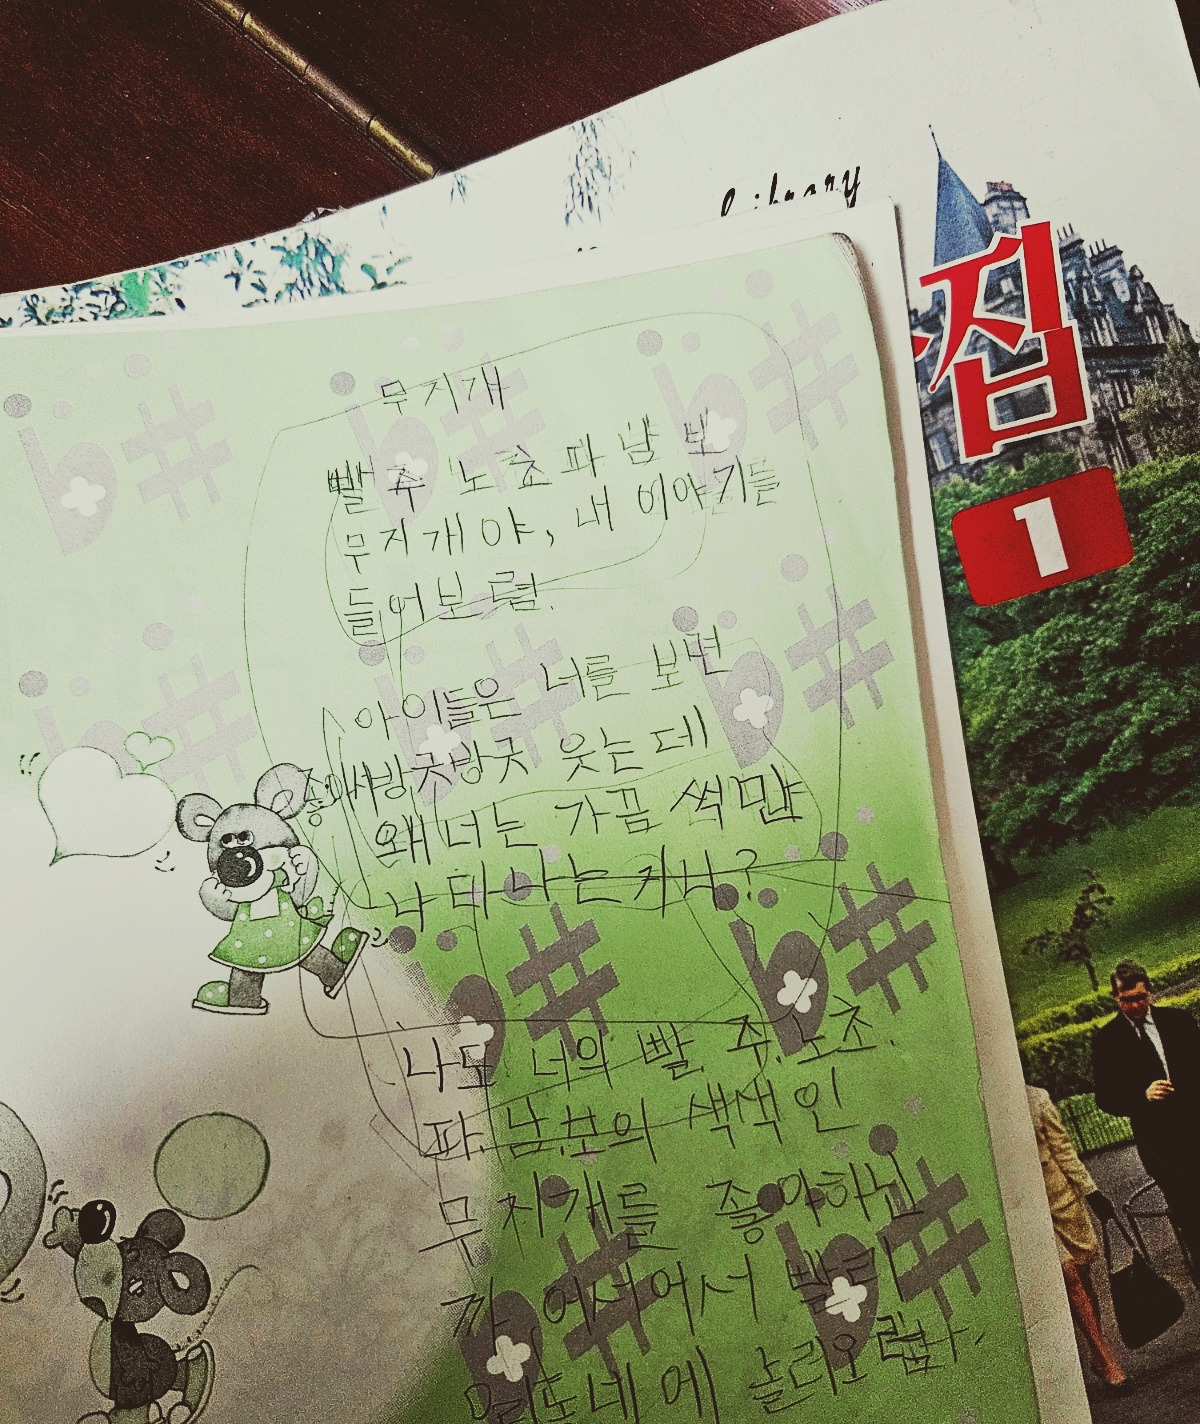 Library
집
1
무지개
빨 주 노 초 파 남 보
무지개야, 내 이야기를
들어보렴.
아이들은 너를 보면
좋아서 방긋방긋 웃는데
왜 너는 가끔씩만
나타나는거니?
나도 너의 빨. 주. 노. 초.
파. 남. 보의 색색인
무지개를 좋아하니
까, 어서어서 빨리
우리동네에 놀러오렴.